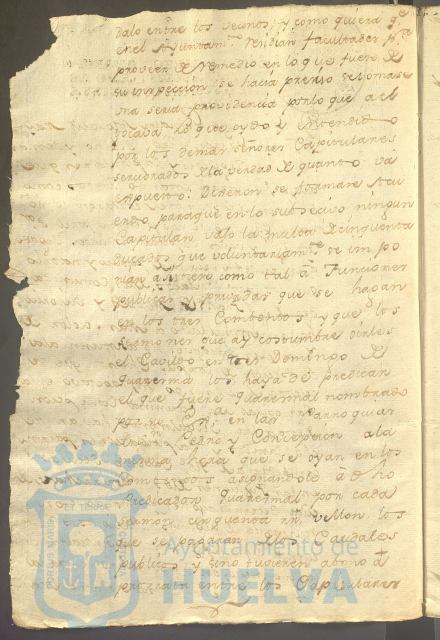 dalo entre los vecinos, y como quiera qe
en el Ayuntamto. rendian facultades pa.
proveer de remedio en lo que fuere de
su inspeccion se hacia preciso se tomase
una seria providencia por lo que a el
tocaba. Lo que oydo y entendido
por los demas señores Capitulares
de la verdad de quanto vá
expuesto: Dixeron se formase Acu
erdo para que en lo subcesivo ningun
Capitular vajo la multa de cinquenta
Ducados que voluntariamte. se impo
nian asistiere como tal a Funciones
publicas y privadas que se hagan
en los tres Combentos y que los
Sermones que ay costumbre oirles
el Cavildo en Domingo de
Quaresma los haya de predicar
el que fuere Quaresmal nombrado
en las Parroquias
Sn. Pedro y Concepcion a la
hora que se oyan en los
Combentos asignandole a dho
Predicador Quaresmal por cada
sermon cinquenta rs. vellon, los
que se pagaran de los Caudales
publicos y sino tuvieren abono a
prorrata entre los Capitulares
Ayuntamiento de
HUELVA